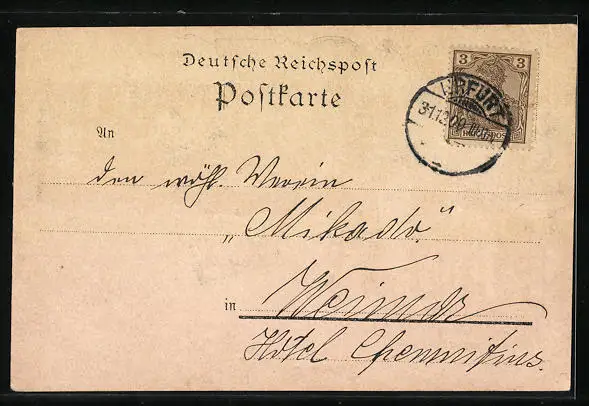 Deutsche Reichspost
Postkarte
3 3
ERFURT
31.12.00
Reichspost
An
den wohl. Verein
„Mikado."
in Weimar
Hotel Chemnitius.